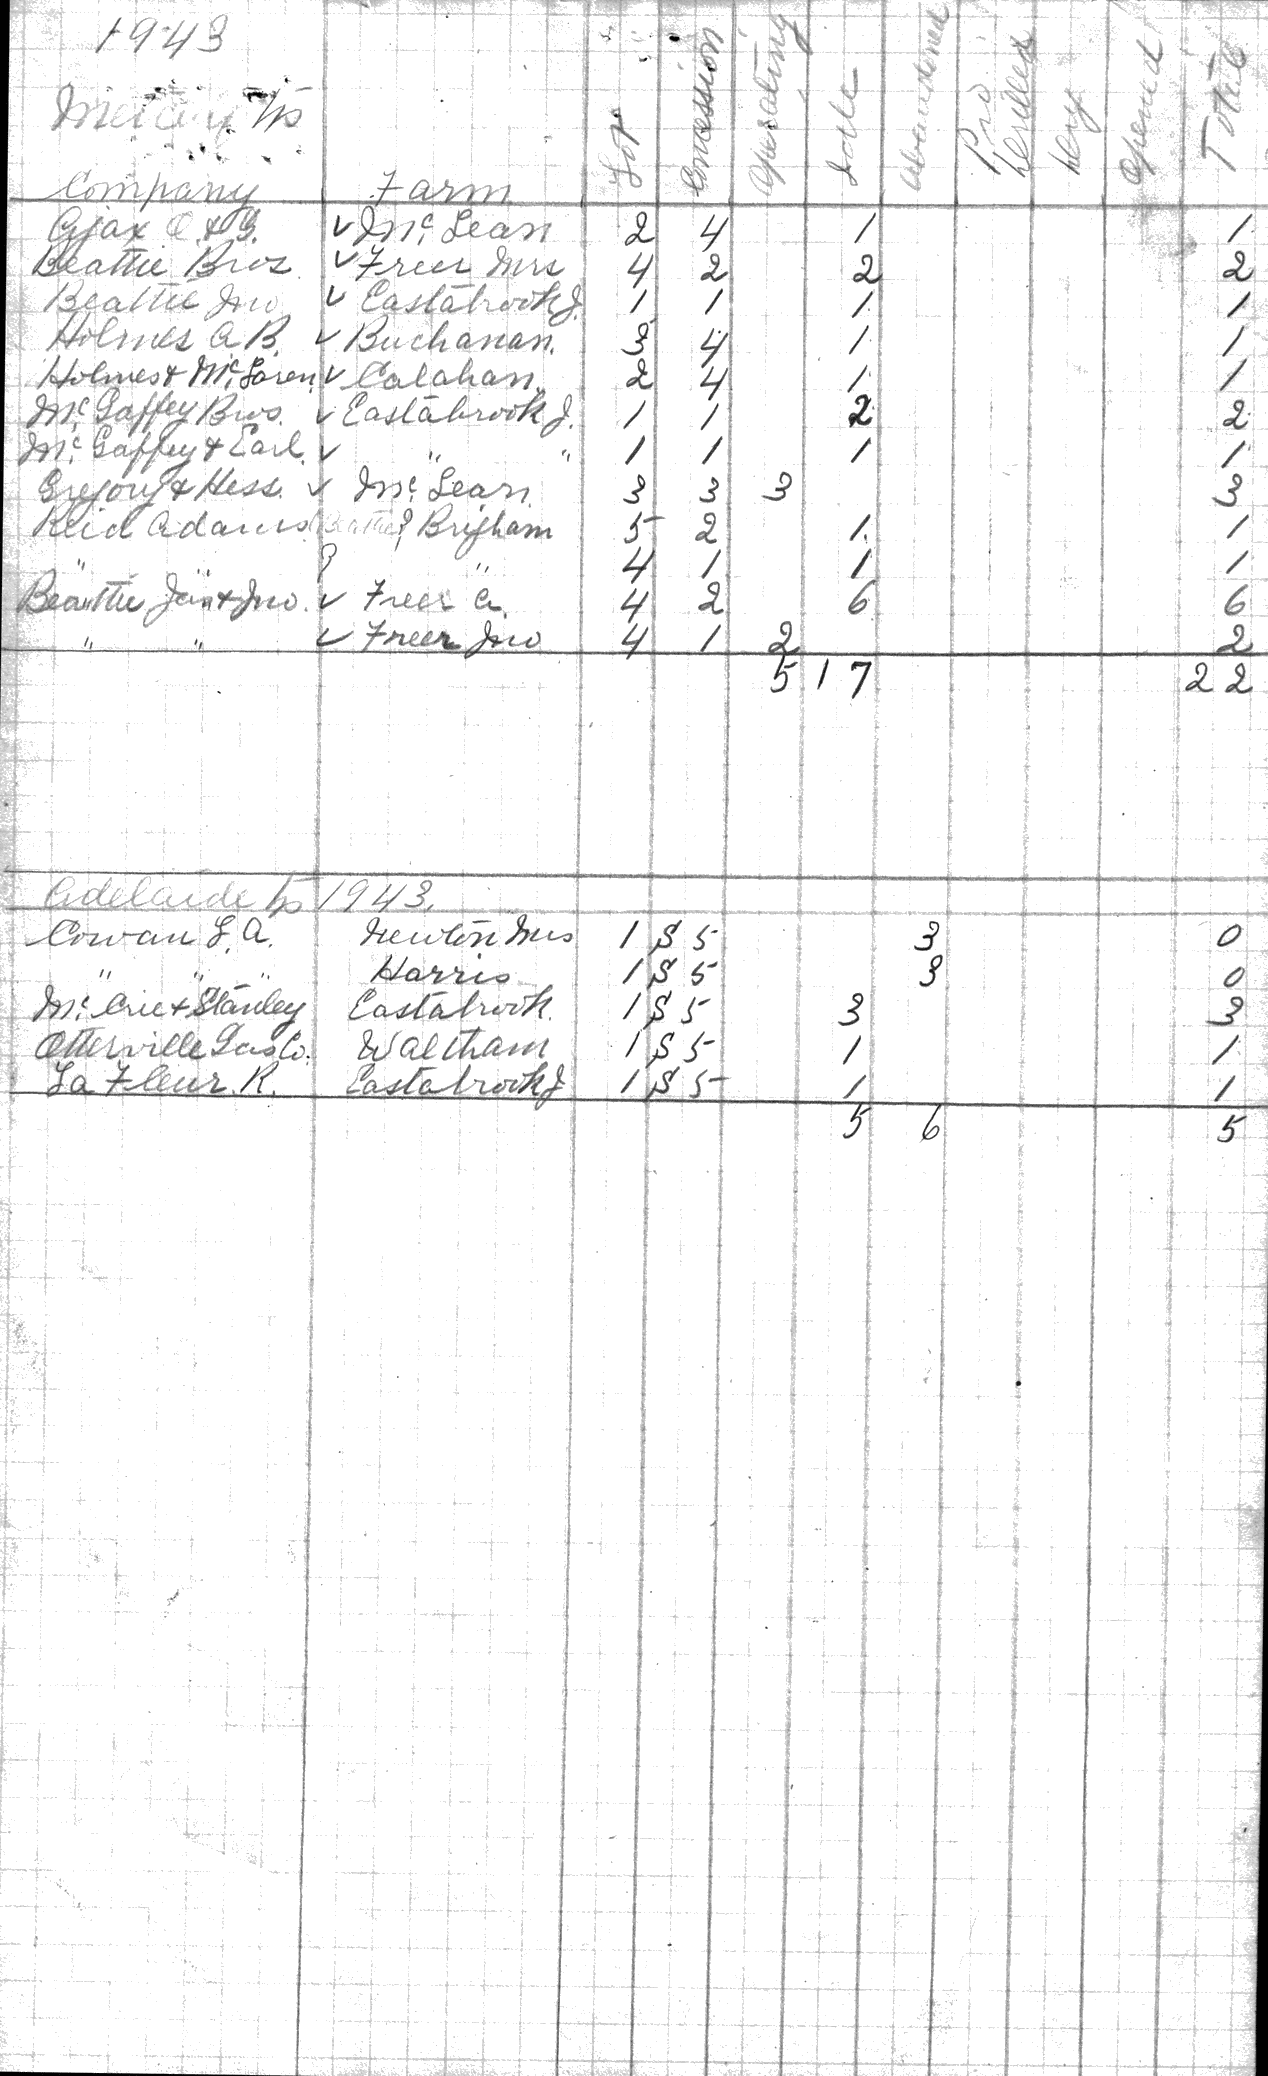 1943
Metcalf Tp
Company Farm Lot Concession Operating Idle Abandoned Pro Drilled Dry Opened Total
Ajax O. & G. ✓ Mc Lean 2 4 1 1
Beattie Bros. ✓ Freer Mrs 4 2 2 2
Beattie Jno ✓ Eastabrook J. 1 1 1 1
Holmes A B. ✓ Buchanan. 3 4 1 1
Holmes & Mc Laren ✓ Calahan. 2 4 1 1
Mc Gaffey Bros. ✓ Eastabrook J. 1 1 2 2
Mc Gaffey & Earl. ✓ " " 1 1 1 1
Gregory & Hess. ✓ Mc Lean 3 3 3 3
Reid Adams Beattie? Brigham 5 2 1 1
" " ? " 4 1 1 1
Beattie Jas & Jno. ✓ Freer A. 4 2 6 6
" " ✓ Freer Jno 4 1 2 2
5 17 22
Adelaide Tp 1943.
Cowan L. A. Newton Mrs 1 S 5 3 0
" " " Harris 1 S 5 3 0
Mc Crie & Stanley Eastabrook. 1 S 5 3 3
Otterville Gas Co. Waltham 1 S 5 1 1
La Fleur R. Eastabrook J 1 S 5 1 1
5 6 5